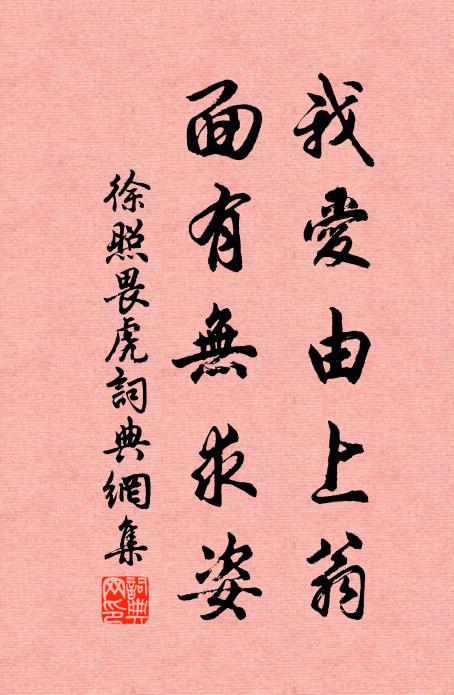 我愛由上翁
面有無求姿
徐照畏虎詞典網集
詞典
网印